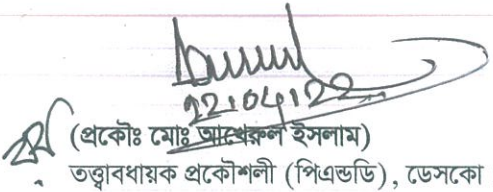 22.04.22
(প্রকৌঃ মোঃ আখেরুল ইসলাম)
তত্ত্বাবধায়ক প্রকৌশলী (পিএন্ডডি), ডেসকো